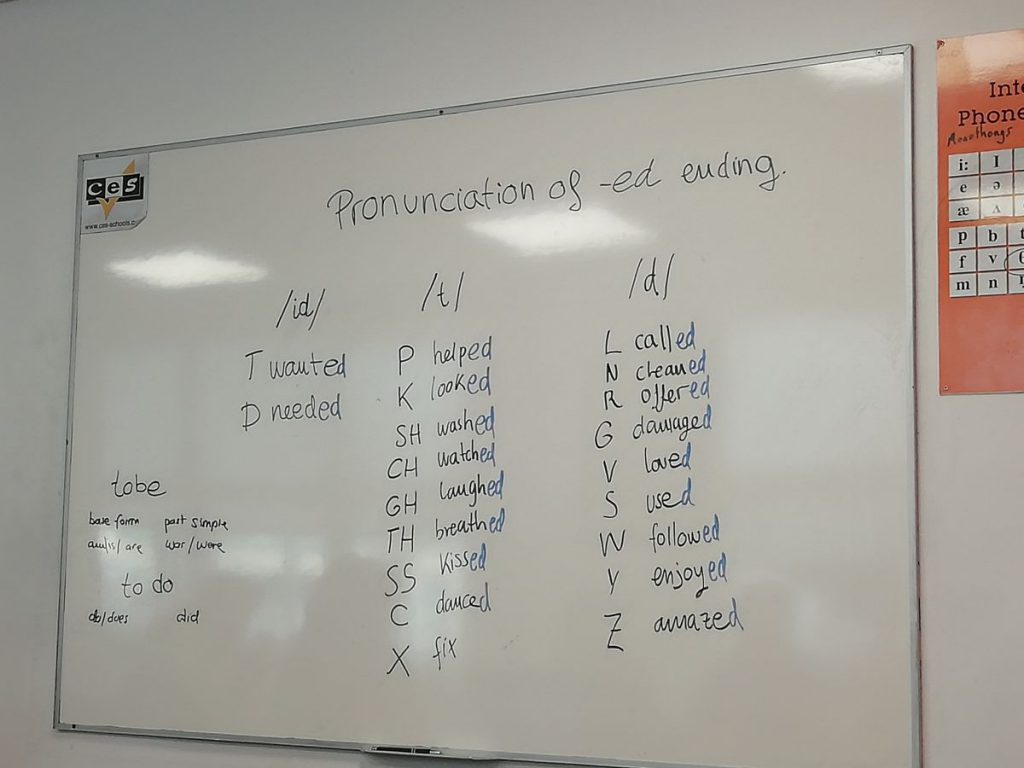 ces
www.ces-schools.c
Pronunciation of -ed ending.
/id/
T wanted
D needed
/t/
P helped
K looked
SH washed
CH watched
GH laughed
TH breathed
SS kissed
C danced
X fix
/d/
L called
N cleaned
R offered
G damaged
V loved
S used
W followed
Y enjoyed
Z amazed
to be
base form past simple
am/is/are was/were
to do
do/does did
Inte
Phone
i: I
e ə
æ ʌ
p b t
f v
m n